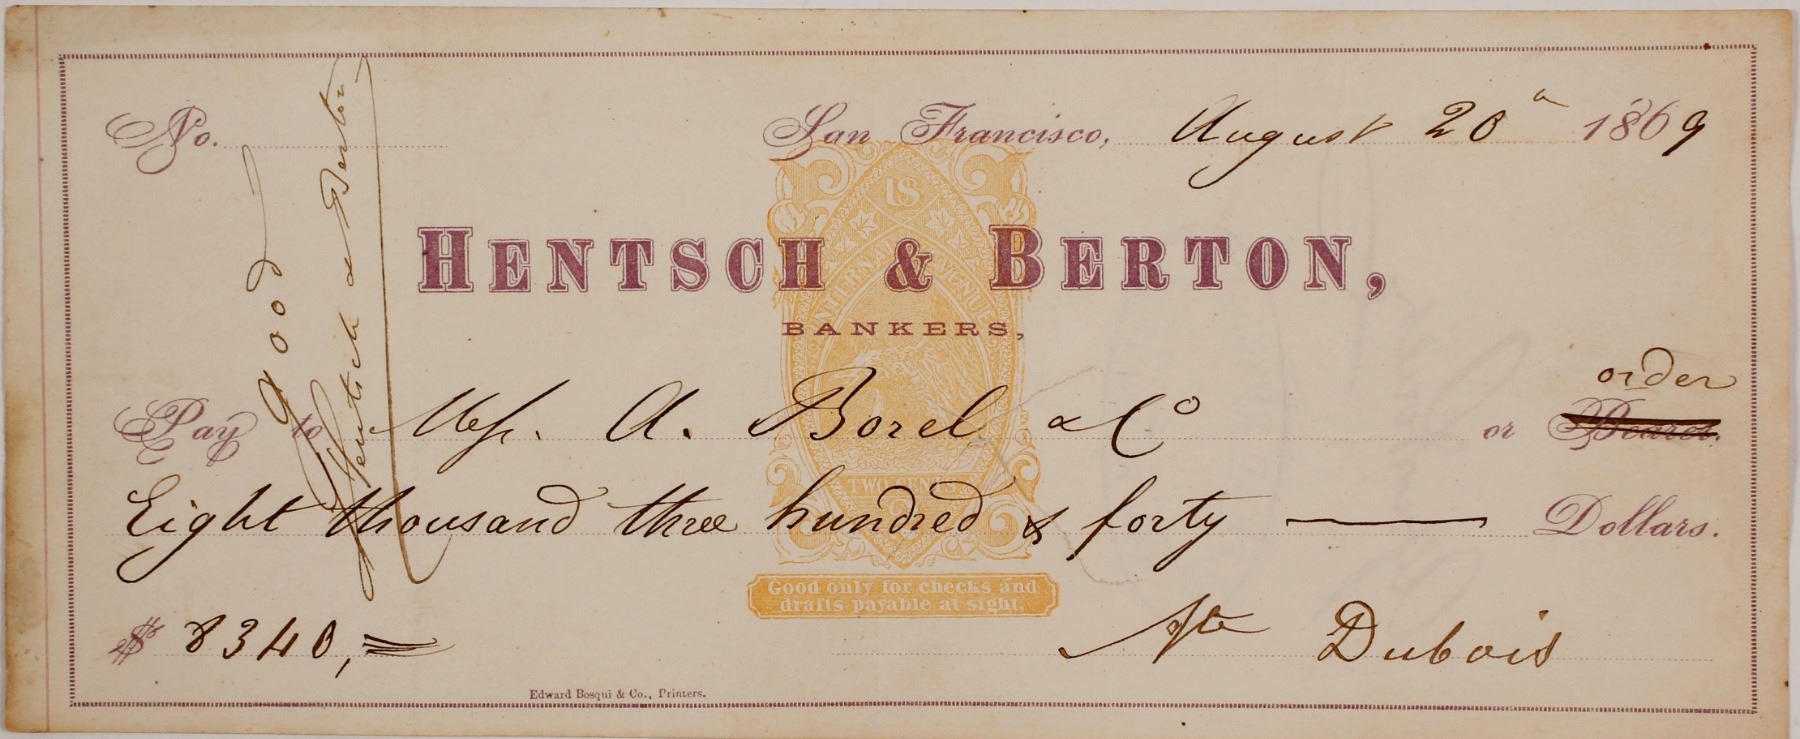 No.
San Francisco, August 20th 1869
good
Hentsch & Berton
US
INTERNAL REVENUE
HENTSCH & BERTON,
BANKERS,
order
Pay to Mess. A. Borel & Co or Bearer.
TWO CENTS
Eight thousand three hundred & forty — Dollars.
Good only for checks and
drafts payable at sight.
$ 8340,=
Dubois
Edward Bosqui & Co., Printers.